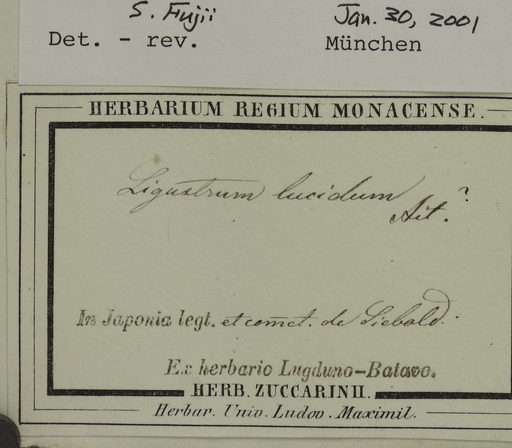 S. Fujii Jan. 30, 2001
Det. - rev. München
HERBARIUM REGIUM MONACENSE.
Ligustrum lucidum
Ait.?
In Japonia legt. et comct. de Siebold.
Ex herbario Lugduno-Batavo.
HERB. ZUCCARINII.
Herbar. Univ. Ludov. Maximil.